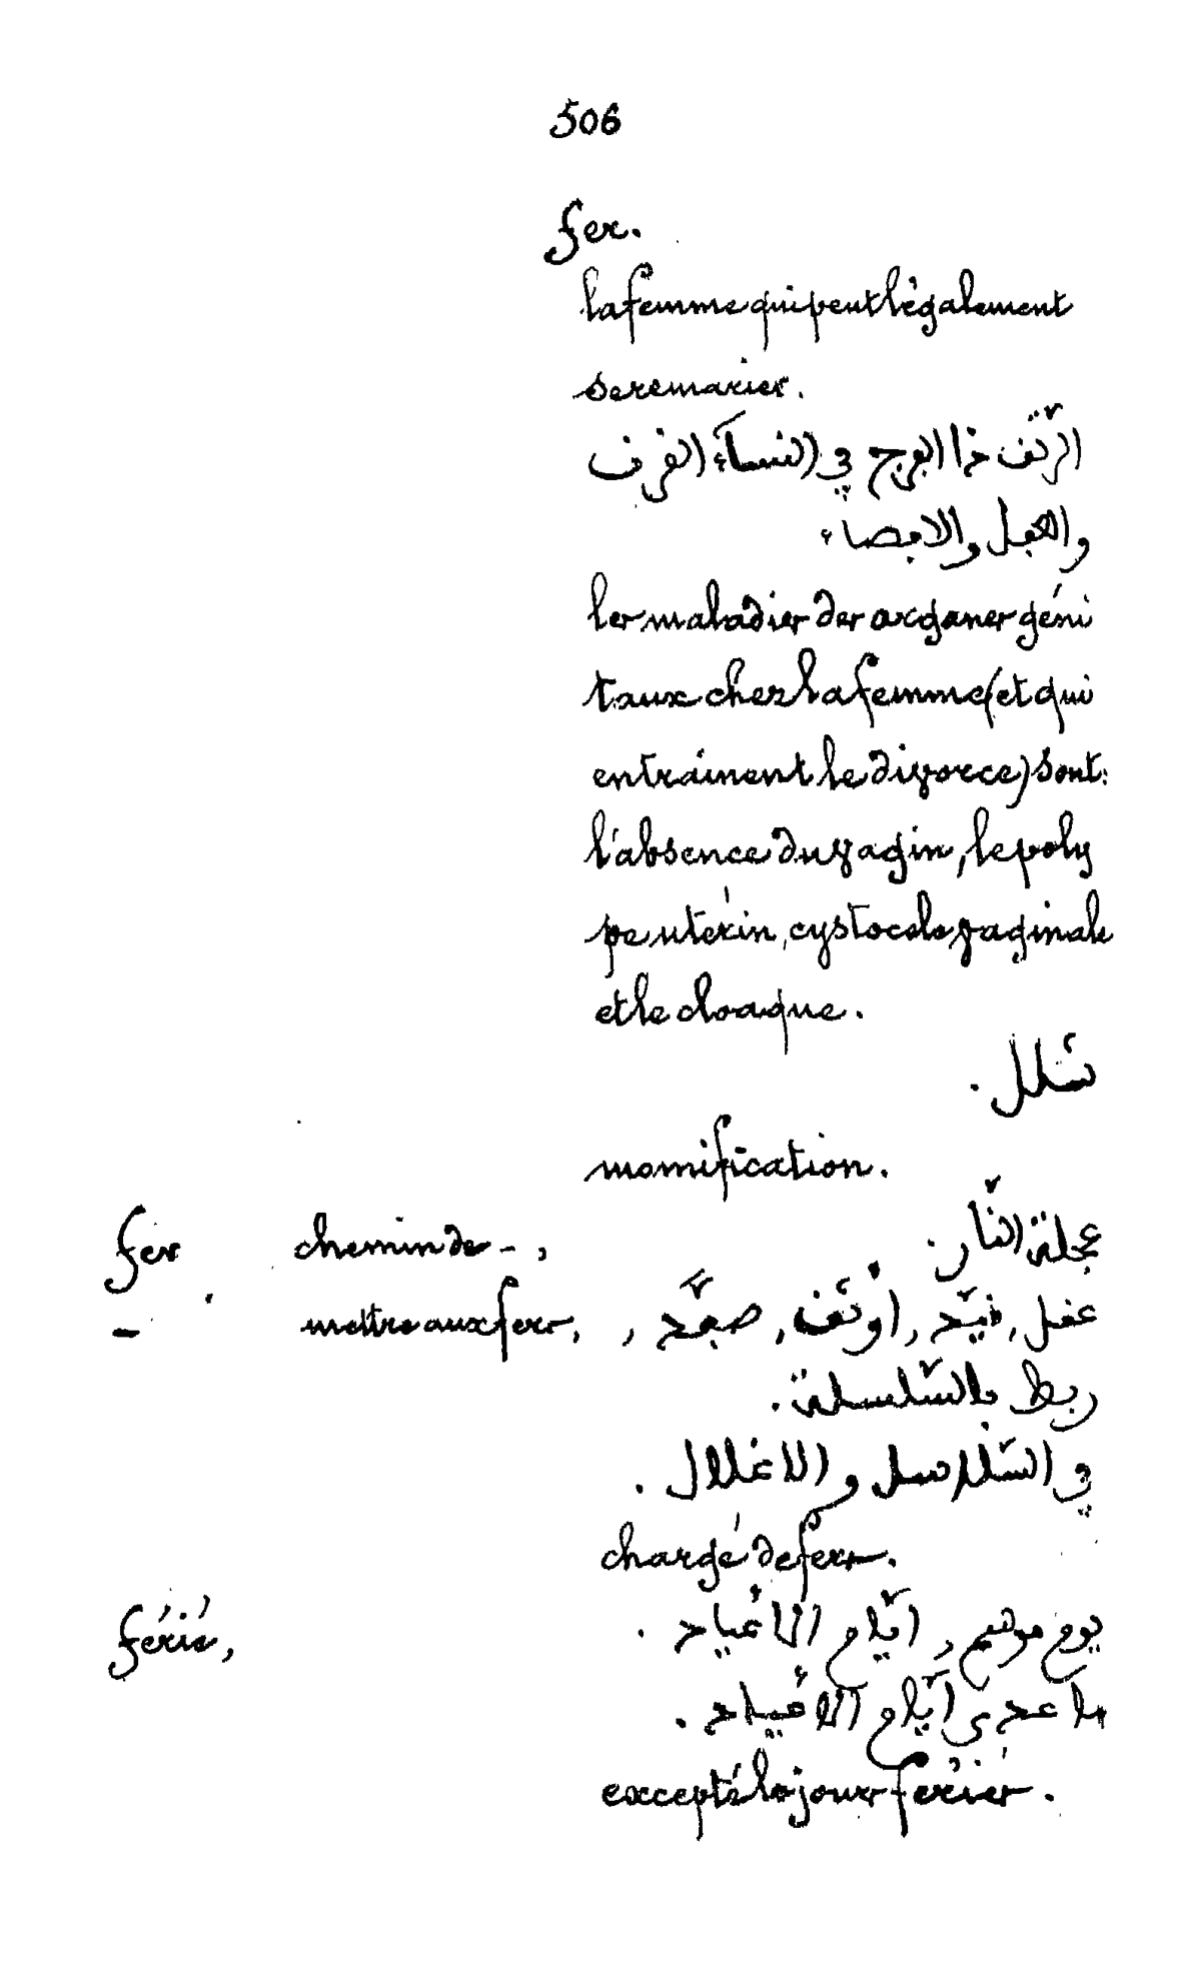 506
fer.
la femme qui peut légalement
se remarier.
الرّتق خا الفرج في النساء القرن
والعفل والافضاء
les maladies des organes géni
taux chez la femme (et qui
entraînent le divorce) sont:
l'absence du vagin, le poly
pe utérin, cystocèle vaginale
et le cloaque.
شلل.
momification.
fer chemin de -, عجلة النّار.
- mettre aux fers, عقل, قيّد, أوثق, صفّد,
ربط بالسّلسلة.
في السّلاسل والاغلال.
chargé de fers.
férié, يوم موسم, ايّام الأعياد.
ما عدى ايّام الأعياد.
excepté les jours fériés.